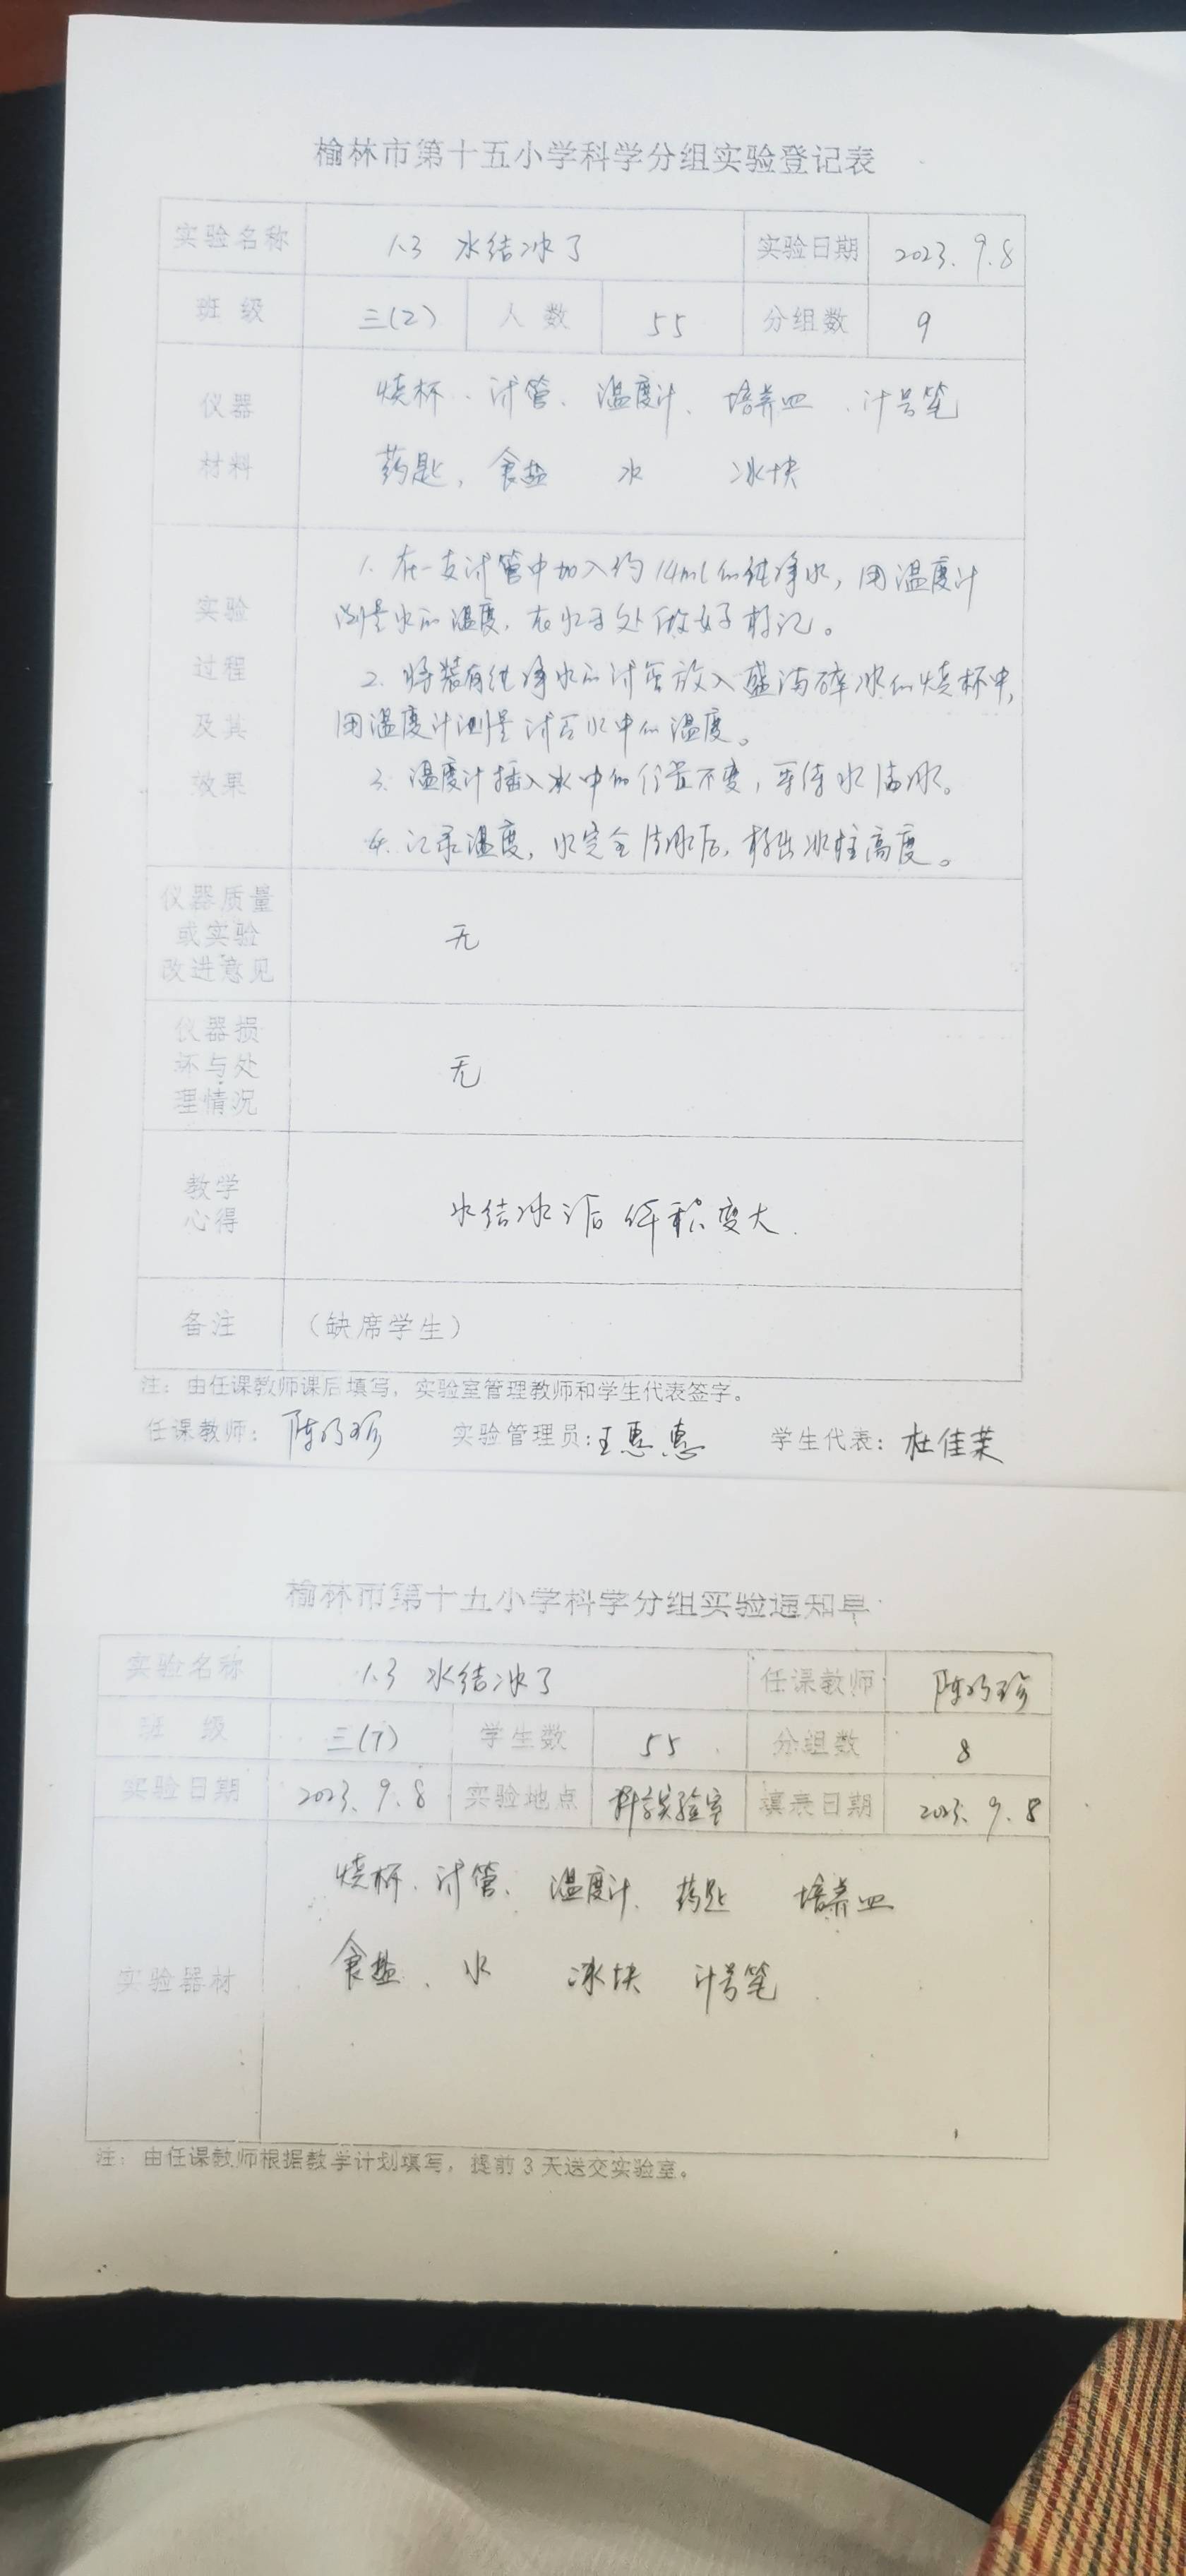 榆林市第十五小学科学分组实验登记表
实验名称 1.3 水结冰了 实验日期 2023.9.8
班 级 三(2) 人 数 55 分组数 9
仪器 烧杯、试管、温度计、培养皿、计号笔
材料 药匙,食盐 水 冰块
实验 过程 及其 效果
1. 在一支试管中加入约14ml的纯净水,用温度计
测量水的温度,在水面处做好标记。
2. 将装有纯净水的试管放入盛满碎冰的烧杯中,
用温度计测量试管水中的温度。
3. 温度计插入水中的位置不变,等待水结冰。
4. 记录温度,水完全结冰后,标出冰柱高度。
仪器质量
或实验 无
改进意见
仪器损
坏与处 无
理情况
教学
心得 水结冰后体积变大.
备注 (缺席学生)
注:由任课教师课后填写,实验室管理教师和学生代表签字。
任课教师: 实验管理员:王惠惠 学生代表:杜佳茉
榆林市第十五小学科学分组实验通知单
实验名称 1.3 水结冰了 任课教师
班 级 三(7) 学生数 55 分组数 8
实验日期 2023.9.8 实验地点 科学实验室 填表日期 2023.9.8
烧杯、试管、温度计、药匙 培养皿
食盐、水 冰块 计号笔
实验器材
注:由任课教师根据教学计划填写,提前3天送交实验室。